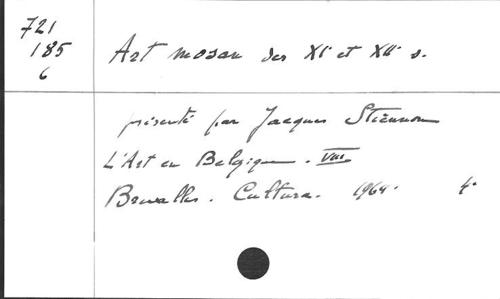 721
185
6
Art mosan des XIe et XIIe s.
présenté par Jacques Stiennon
L'Art en Belgique. VIII
Bruxelles. Cultura. 1964. 4°